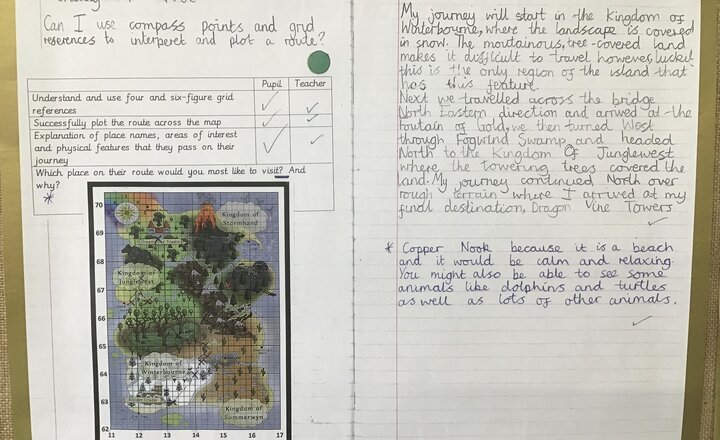 Can I use compass points and grid
references to interpret and plot a route?
Pupil Teacher
Understand and use four and six-figure grid
references
Successfully plot the route across the map
Explanation of place names, areas of interest
and physical features that they pass on their
journey
Which place on their route would you most like to visit? And
why?
*
70
69
68
67
66
65
64
63
62
11 12 13 14 15 16 17
Kingdom of
Stormhand
Kingdom of
Junglewest
Kingdom of
Winterbourne
Kingdom of
Summerwyn
My journey will start in the Kingdom of
Winterbourne, where the landscape is covered
in snow. The moutainous, tree-covered land
makes it difficult to travel however,
this is the only region of the island that
has this feature.
Next we travelled across the bridge
North Eastern direction and arrived at the
Foutain of Gold, we then turned West
through Fogwind Swamp and headed
North to the Kingdom Of Junglewest
where the towering trees covered the
land. My journey continued North over
rough terrain where I arrived at my
final destination, Dragon Vine Towers
* Copper Nook because it is a beach
and it would be calm and relaxing.
You might also be able to see some
animals like dolphins and turtles
as well as lots of other animals.